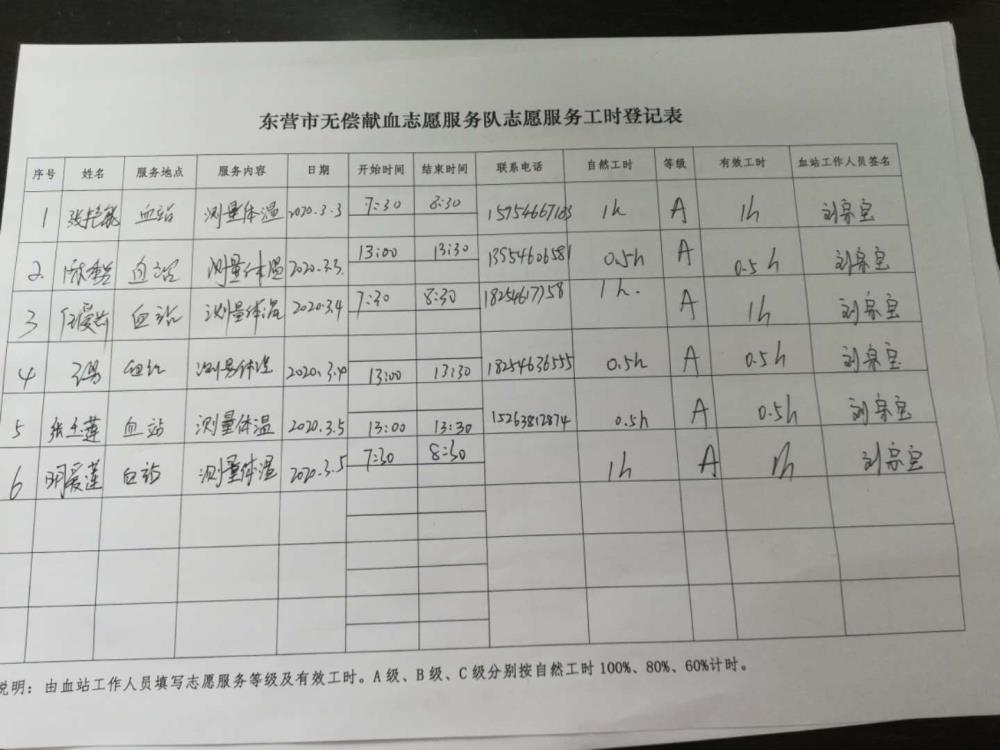 东营市无偿献血志愿服务队志愿服务工时登记表
序号 姓名 服务地点 服务内容 日期 开始时间 结束时间 联系电话 自然工时 等级 有效工时 血站工作人员签名
1 血站 测量体温 2020.3.3 7:30 8:30 1h A 1h 刘宗宝
2 血站 测量体温 2020.3.3. 13:00 13:30 13954606581 0.5h A 0.5h 刘宗宝
3 血站 测量体温 2020.3.4 7:30 8:30 18254617758 1h. A 1h 刘宗宝
4 血站 测量体温 2020.3.4 13:00 13:30 18254636555 0.5h A 0.5h 刘宗宝
5 张玉莲 血站 测量体温 2020.3.5 13:00 13:30 15263812874 0.5h A 0.5h 刘宗宝
6 明爱莲 血站 测量体温 2020.3.5 7:30 8:30 1h A 1h 刘宗宝
说明：由血站工作人员填写志愿服务等级及有效工时。A级、B级、C级分别按自然工时100%、80%、60%计时。